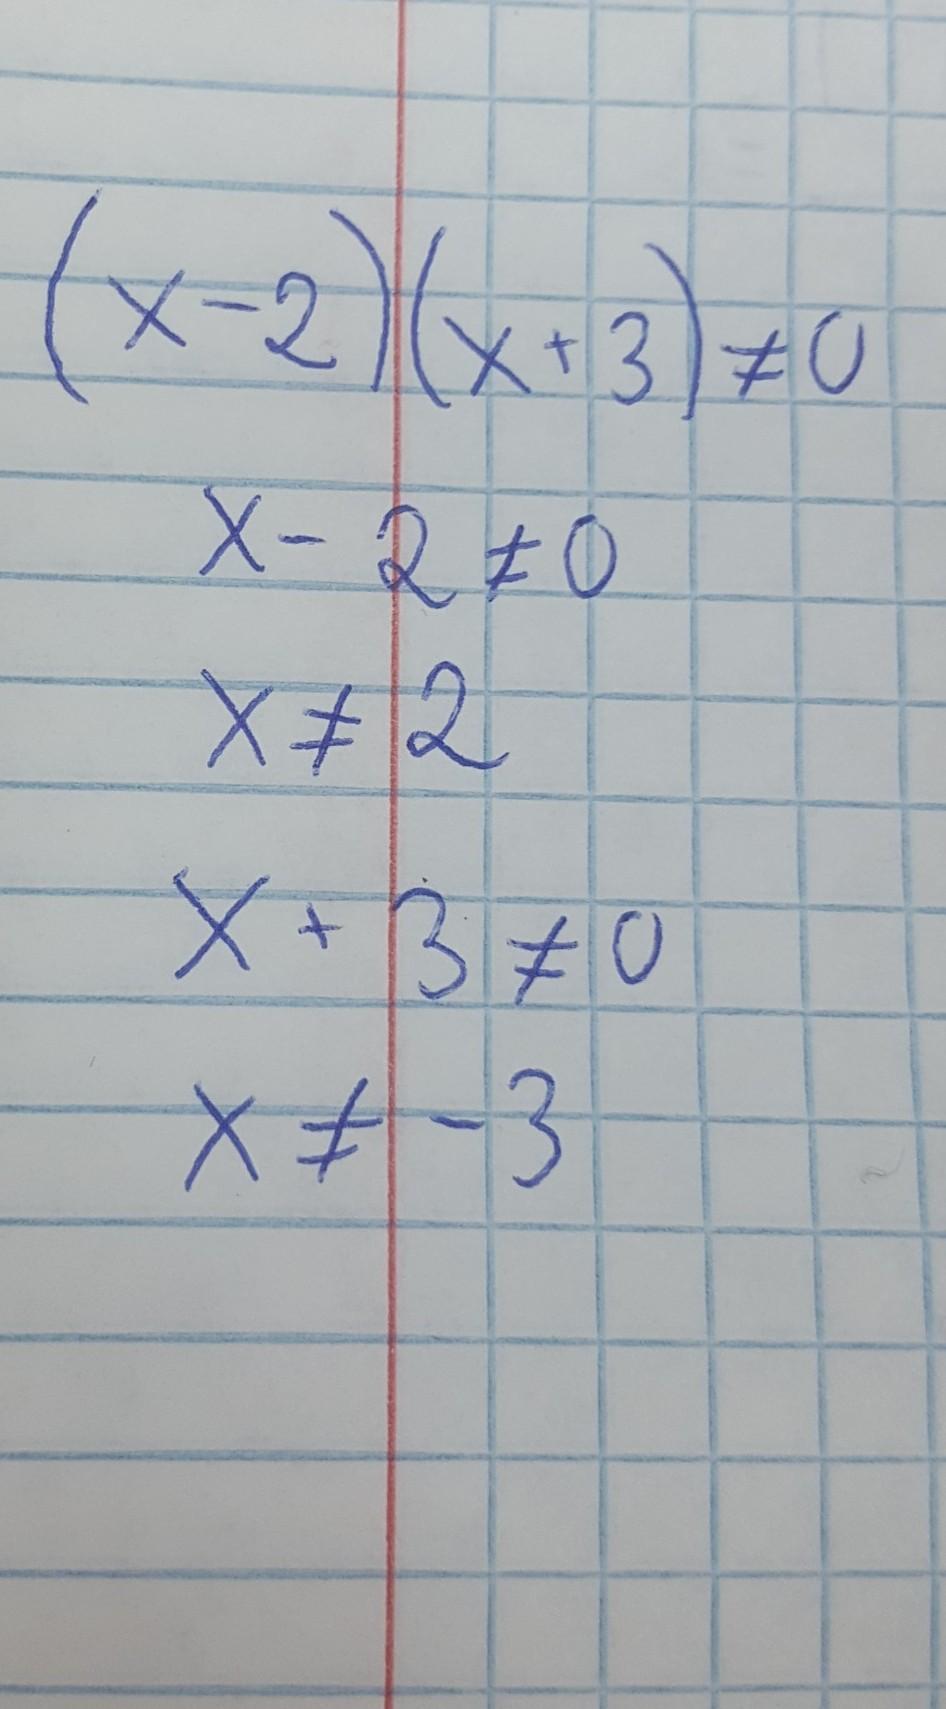 (x-2)(x+3)≠0
x-2≠0
x≠2
x+3≠0
x≠-3